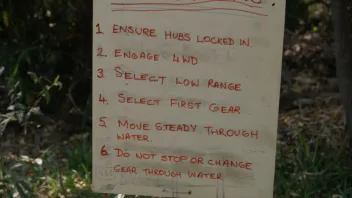 1 ENSURE HUBS LOCKED IN.
2. ENGAGE 4WD
3 SELECT LOW RANGE
4. SELECT FIRST GEAR
5 MOVE STEADY THROUGH
WATER.
6. DO NOT STOP OR CHANGE
GEAR THROUGH WATER